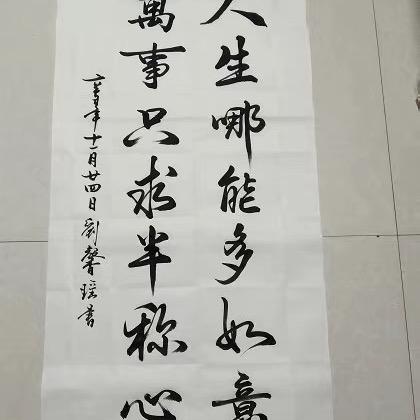 人生哪能多如意
萬事只求半称心
年十一月廿四日劉馨瑶書